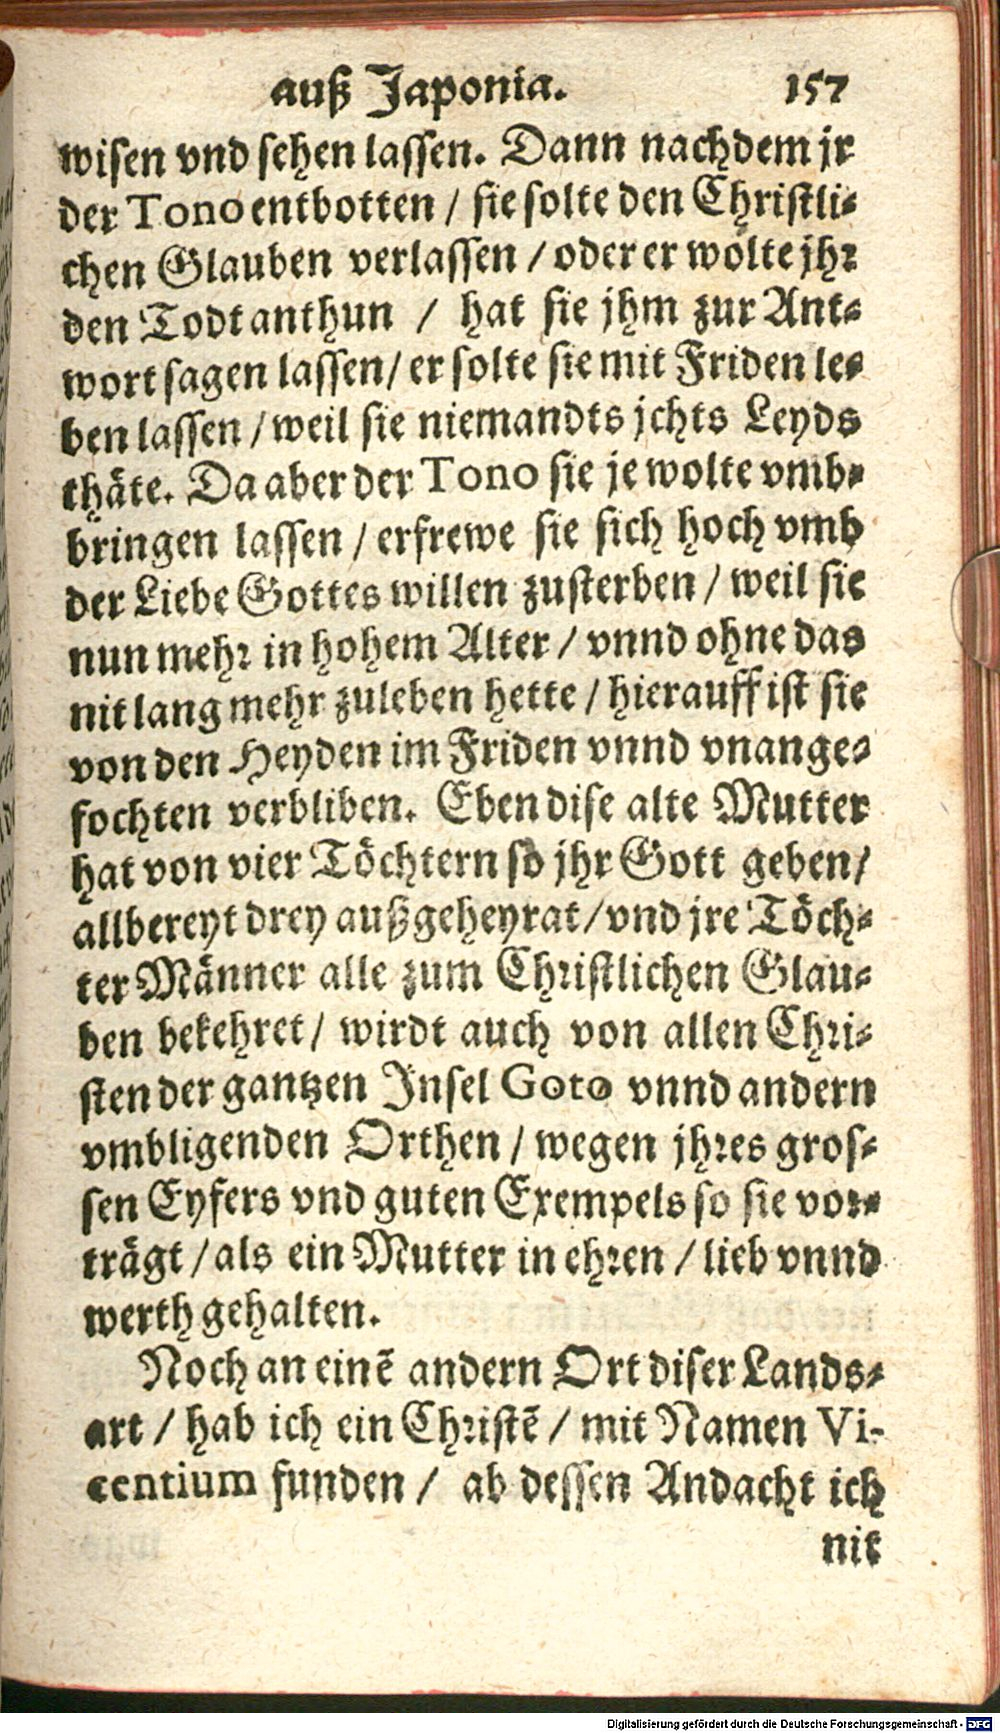 auß Japonia. 157
wisen vnd sehen lassen. Dann nachdem jr
der Tono entbotten / sie solte den Christli-
chen Glauben verlassen / oder er wölte jhr
den Todt anthun / hat sie jhm zur Ant-
wort sagen lassen / er solte sie mit Friden le-
ben lassen / weil sie niemandts jchts Leyds
thäte. Da aber der Tono sie je wolte vmb-
bringen lassen / erfrewe sie sich hoch vmb
der Liebe Gottes willen zusterben / weil sie
nun mehr in hohem Alter / vnnd ohne das
nit lang mehr zuleben hette / hierauff ist sie
von den Heyden im Friden vnnd vnange-
fochten verbliben. Eben dise alte Mutter
hat von vier Töchtern so jhr Gott geben /
allbereyt drey außgeheyrat / vnd jre Töch-
ter Männer alle zum Christlichen Glau-
ben bekehret / wirdt auch von allen Chri-
sten der gantzen Insel Goto vnnd andern
vmbligenden Orthen / wegen jhres gros-
sen Eyfers vnd guten Exempels so sie vor-
trägt / als ein Mutter in ehren / lieb vnnd
werth gehalten.
Noch an einē andern Ort diser Lands-
art / hab ich ein Christē / mit Namen Vi-
centium funden / ab dessen Andacht ich
nit
Digitalisierung gefördert durch die Deutsche Forschungsgemeinschaft - DFG